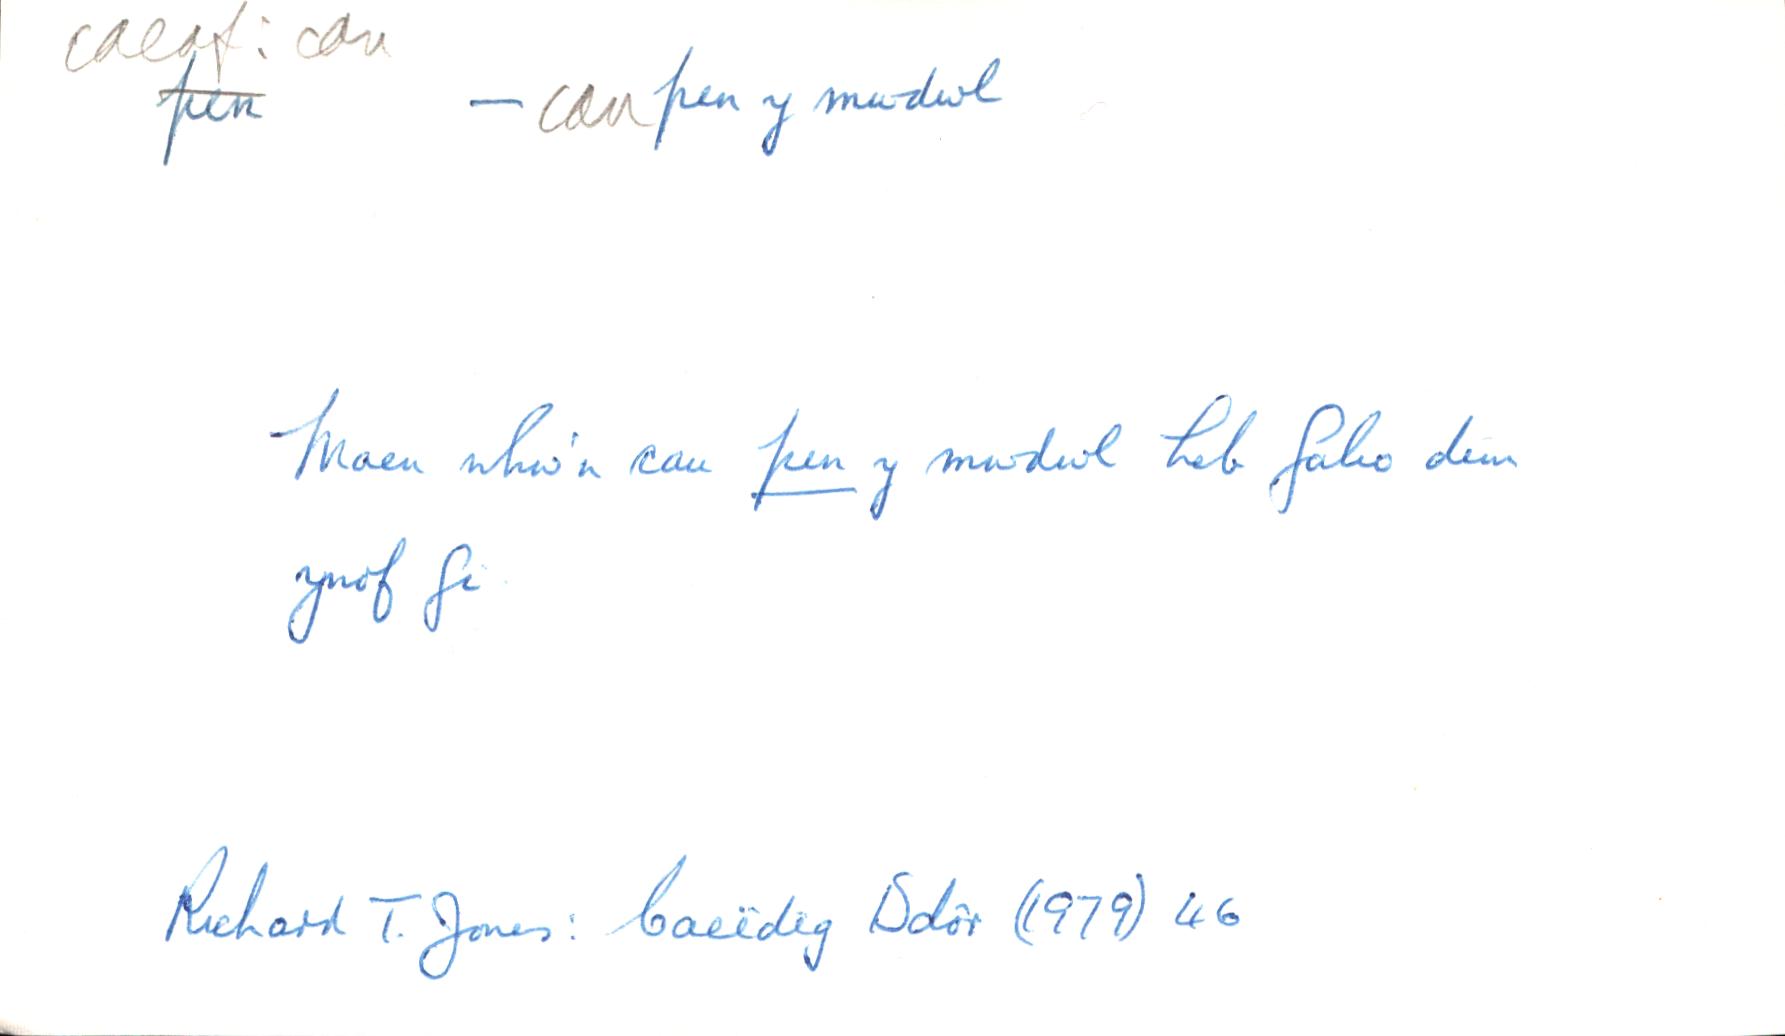 caeaf: cau
pen — cau pen y mwdwl
Maen nhw'n cau pen y mwdwl heb falio dim
ynof fi
Richard T. Jones: Caeëdig Ddôr (1979) 46